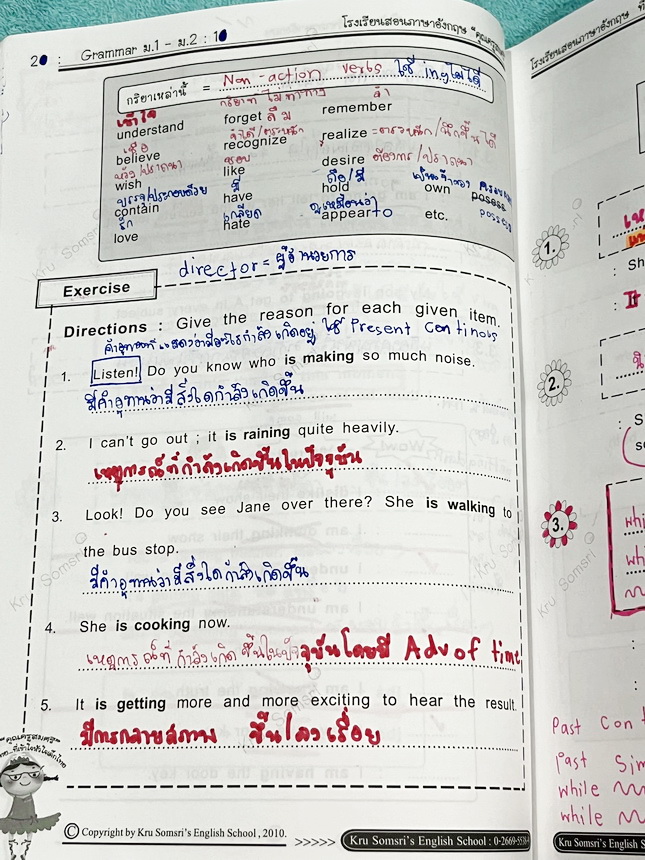 โรงเรียนสอนภาษาอังกฤษ "คุณครูสมศรี"
: Grammar ม.1 - ม.2 :
กริยาเหล่านี้ = Non-action verbs ใช้ ing ไม่ได้
กริยาที่ไม่ทำทาง
เข้าใจ ลืม จำ
understand forget remember
จำได้/ตระหนัก
recognize realize = ตระหนัก/นึกขึ้นได้
เชื่อ
believe ชอบ
like desire ต้องการ/ปรารถนา
หวัง/ปรารถนา
wish มี ถือ/มี เป็นเจ้าของ
บรรจุ/ประกอบด้วย
contain have hold own possess
รัก เกลียด ดูเหมือนว่า possess
love hate appear to etc.
director = ผู้อำนวยการ
Exercise
Directions : Give the reason for each given item.
ใช้ Present Continous
1. Listen! Do you know who is making so much noise.
มีคำอุทานว่ามีสิ่งใดกำลังเกิดขึ้น
2. I can't go out ; it is raining quite heavily.
เหตุการณ์ที่กำลังเกิดขึ้นในปัจจุบัน
3. Look! Do you see Jane over there? She is walking to
the bus stop.
มีคำอุทานว่ามีสิ่งใดกำลังเกิดขึ้น
4. She is cooking now.
เหตุการณ์ที่กำลังเกิดขึ้นในปัจจุบันโดยมี Adv of time
5. It is getting more and more exciting to hear the result.
มีการกลายสภาพ ขึ้นเรื่อย
"คุณครูสมศรี"
© Copyright by Kru Somsri's English School , 2010.
>>>>> Kru Somsri's English School : 0-2669-5538-9
โรงเรียนสอนภาษาอังกฤษ
1.
: Sh
: It
2.
: S
3.
whi
whi
Past Con
Past Sim
while
while
Kru Somsri's En
Kru Somsri ©